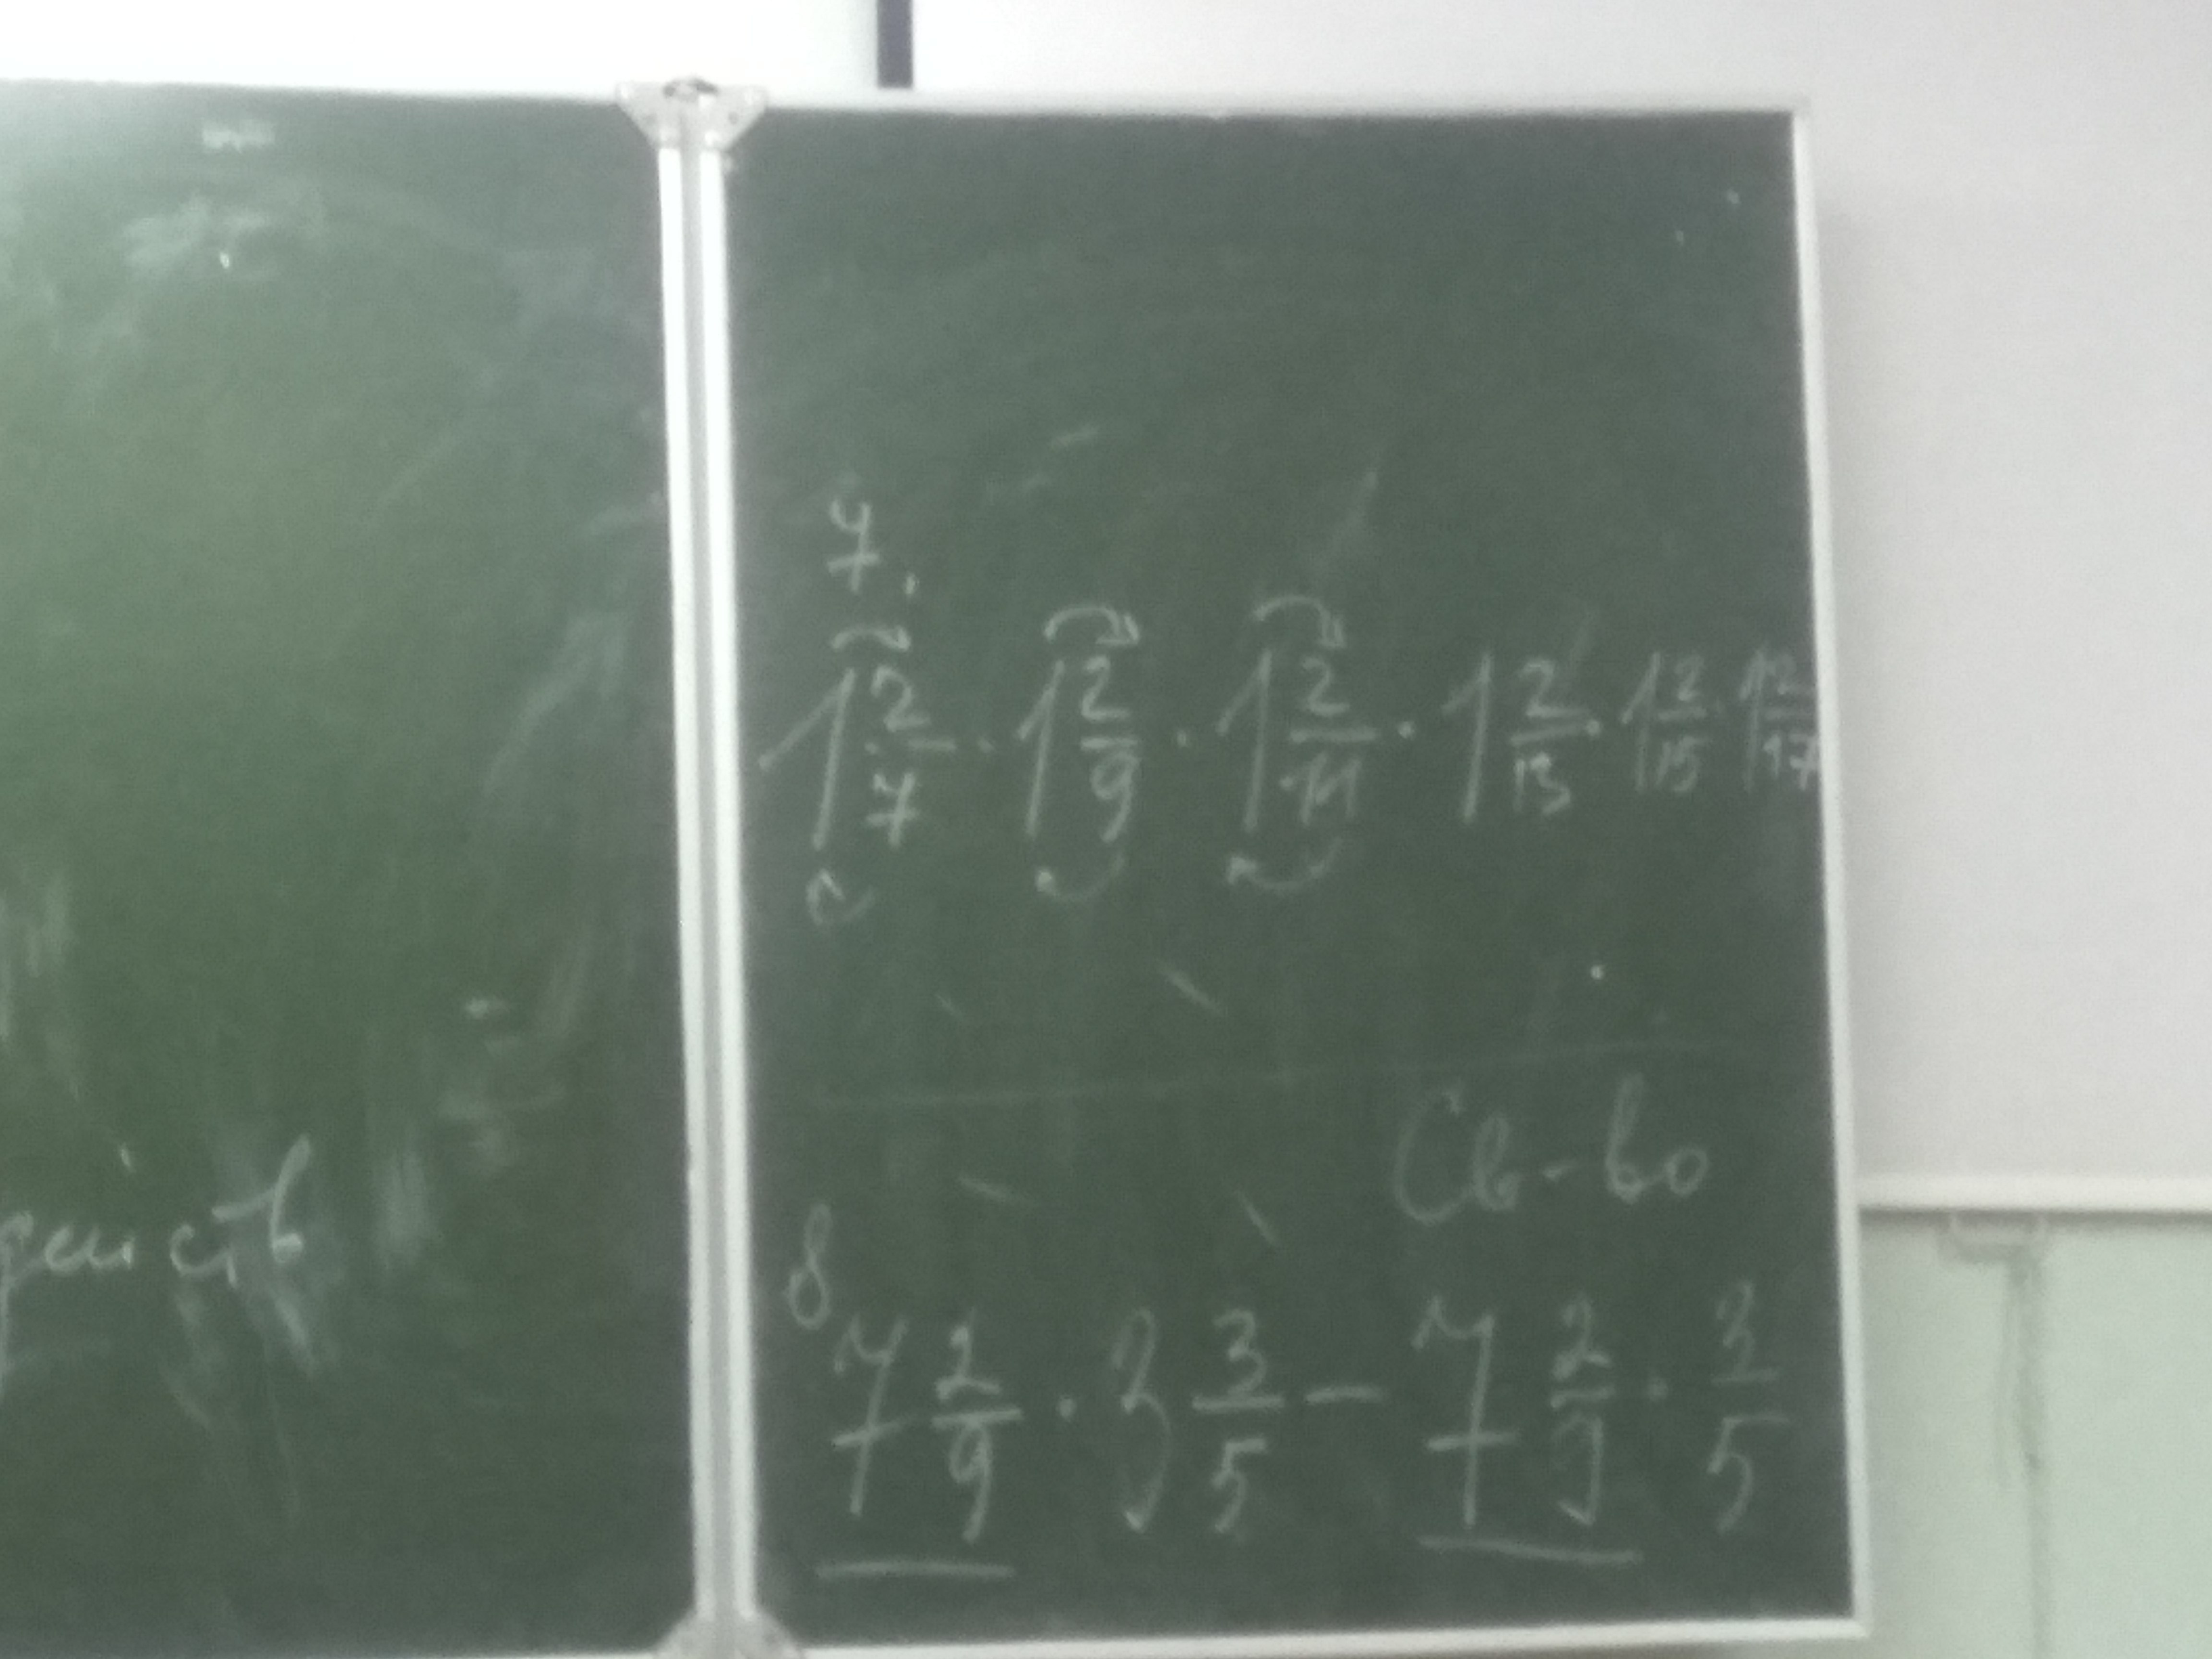 7.
1 2/7 · 1 2/9 · 1 2/11 · 1 2/13 · 1 2/15 · 1 2/17
Св-во
8
7 2/9 · 3 3/5 − 7 2/9 · 3/5